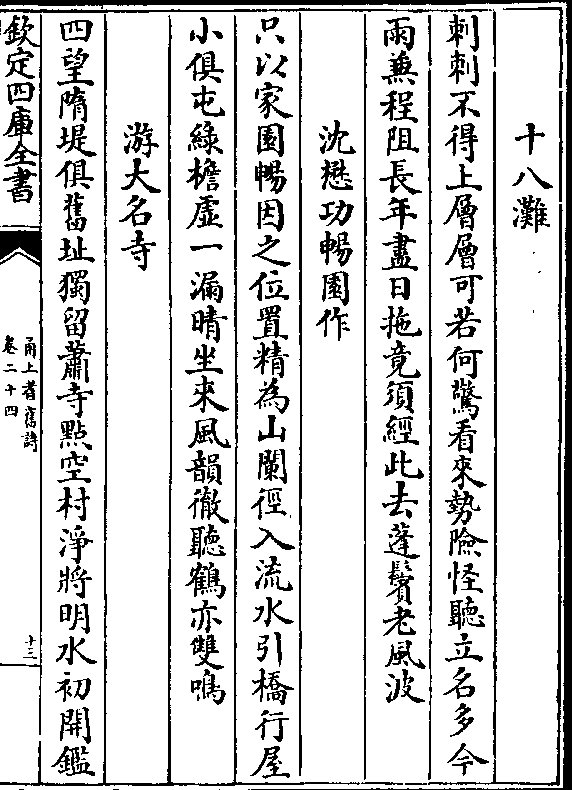 十八灘
刺刺不得上層層可若何驚看來勢險怪聽立名多今
雨兼程阻長年盡日拖竟須經此去蓬鬢老風波
沈懋功暢園作
只以家園暢因之位置精為山闌徑入流水引橋行屋
小俱屯綠檐虛一漏晴坐來風韻徹聽鶴亦雙鳴
游大名寺
四望隋堤俱舊址獨留蕭寺點空村淨將明水初開鑑
欽定四庫全書
甬上耆舊詩
卷二十四
十三